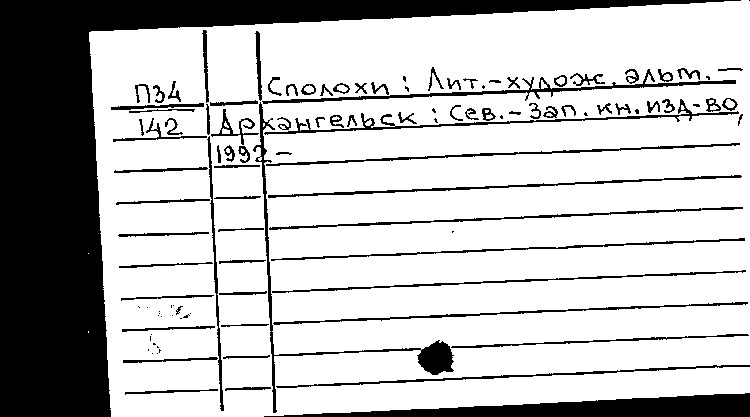 П34 Сполохи : Лит.-худож. альм. —
142 Архангельск : Сев.-Зап. кн. изд-во,
1992 -